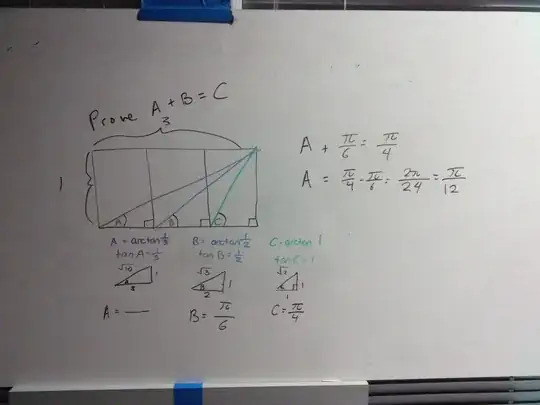 Prove A + B = C
3
1
A B C
A = arctan 1/3
tan A = 1/3
√10
1
3
A = —
B = arctan 1/2
tan B = 1/2
√3
1
2
B = π/6
C = arctan 1
tan C = 1
1
1
C = π/4
A + π/6 = π/4
A = π/4 - π/6 = 2π/24 = π/12